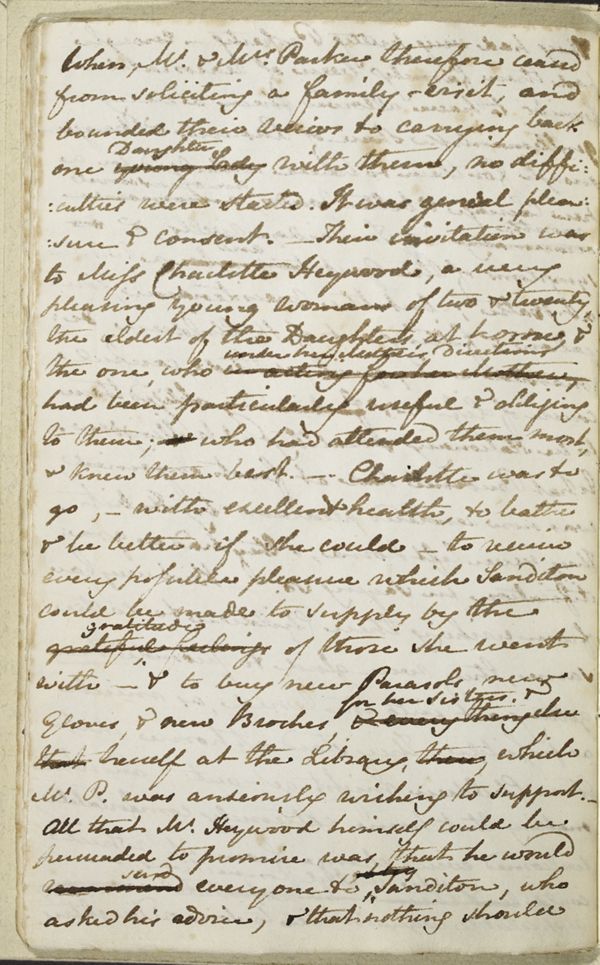 When, Mr. & Mrs. Parker therefore ceased
from soliciting a family-visit, and
bounded their veiws to carrying back
Daughter
one young Lady with them, no diffi:
:culties were started. It was general plea:
:sure & consent. — Their invitation was
to Miss Charlotte Heywood, a very
pleasing young woman of two & twenty,
the eldest of the Daughters at home, &
under her Mother's Directions
the one, who in acting for her Mother,
had been particularly useful & obliging
to them; who had attended them most,
& knew them best. — Charlotte was to
go, — with excellent health, to bathe
& be better if she could — to receive
every possible pleasure which Sanditon
could be made to supply by the
gratitude
grateful feelings of those she went
with — & to buy new Parasols, new
for her sisters &
Gloves, & new Broches, & every thing else
that herself at the Library, then, which
Mr. P. was anxiously wishing to support. —
All that Mr. Heywood himself could be
persuaded to promise was, that he would
send
recommend everyone to Sanditon, who
asked his advice, & that nothing should